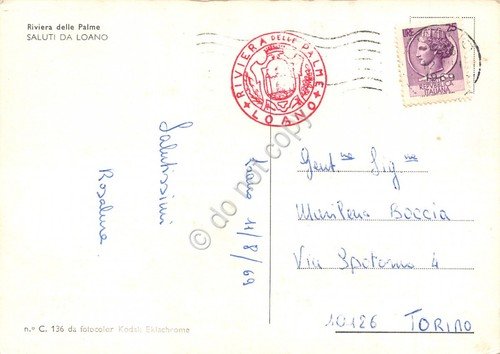 Riviera delle Palme
SALUTI DA LOANO
RIVIERA DELLE PALME
LOANO
LIRE 25
1969
REPUBBLICA
ITALIANA
Loano 11/8/69
Salutissimi
Rosalma
Gent.me Sig.ne
Boccia
Via Spotorno 4
10126 TORINO
n.º C. 136 da fotocolor Kodak Ektachrome
© do not copy